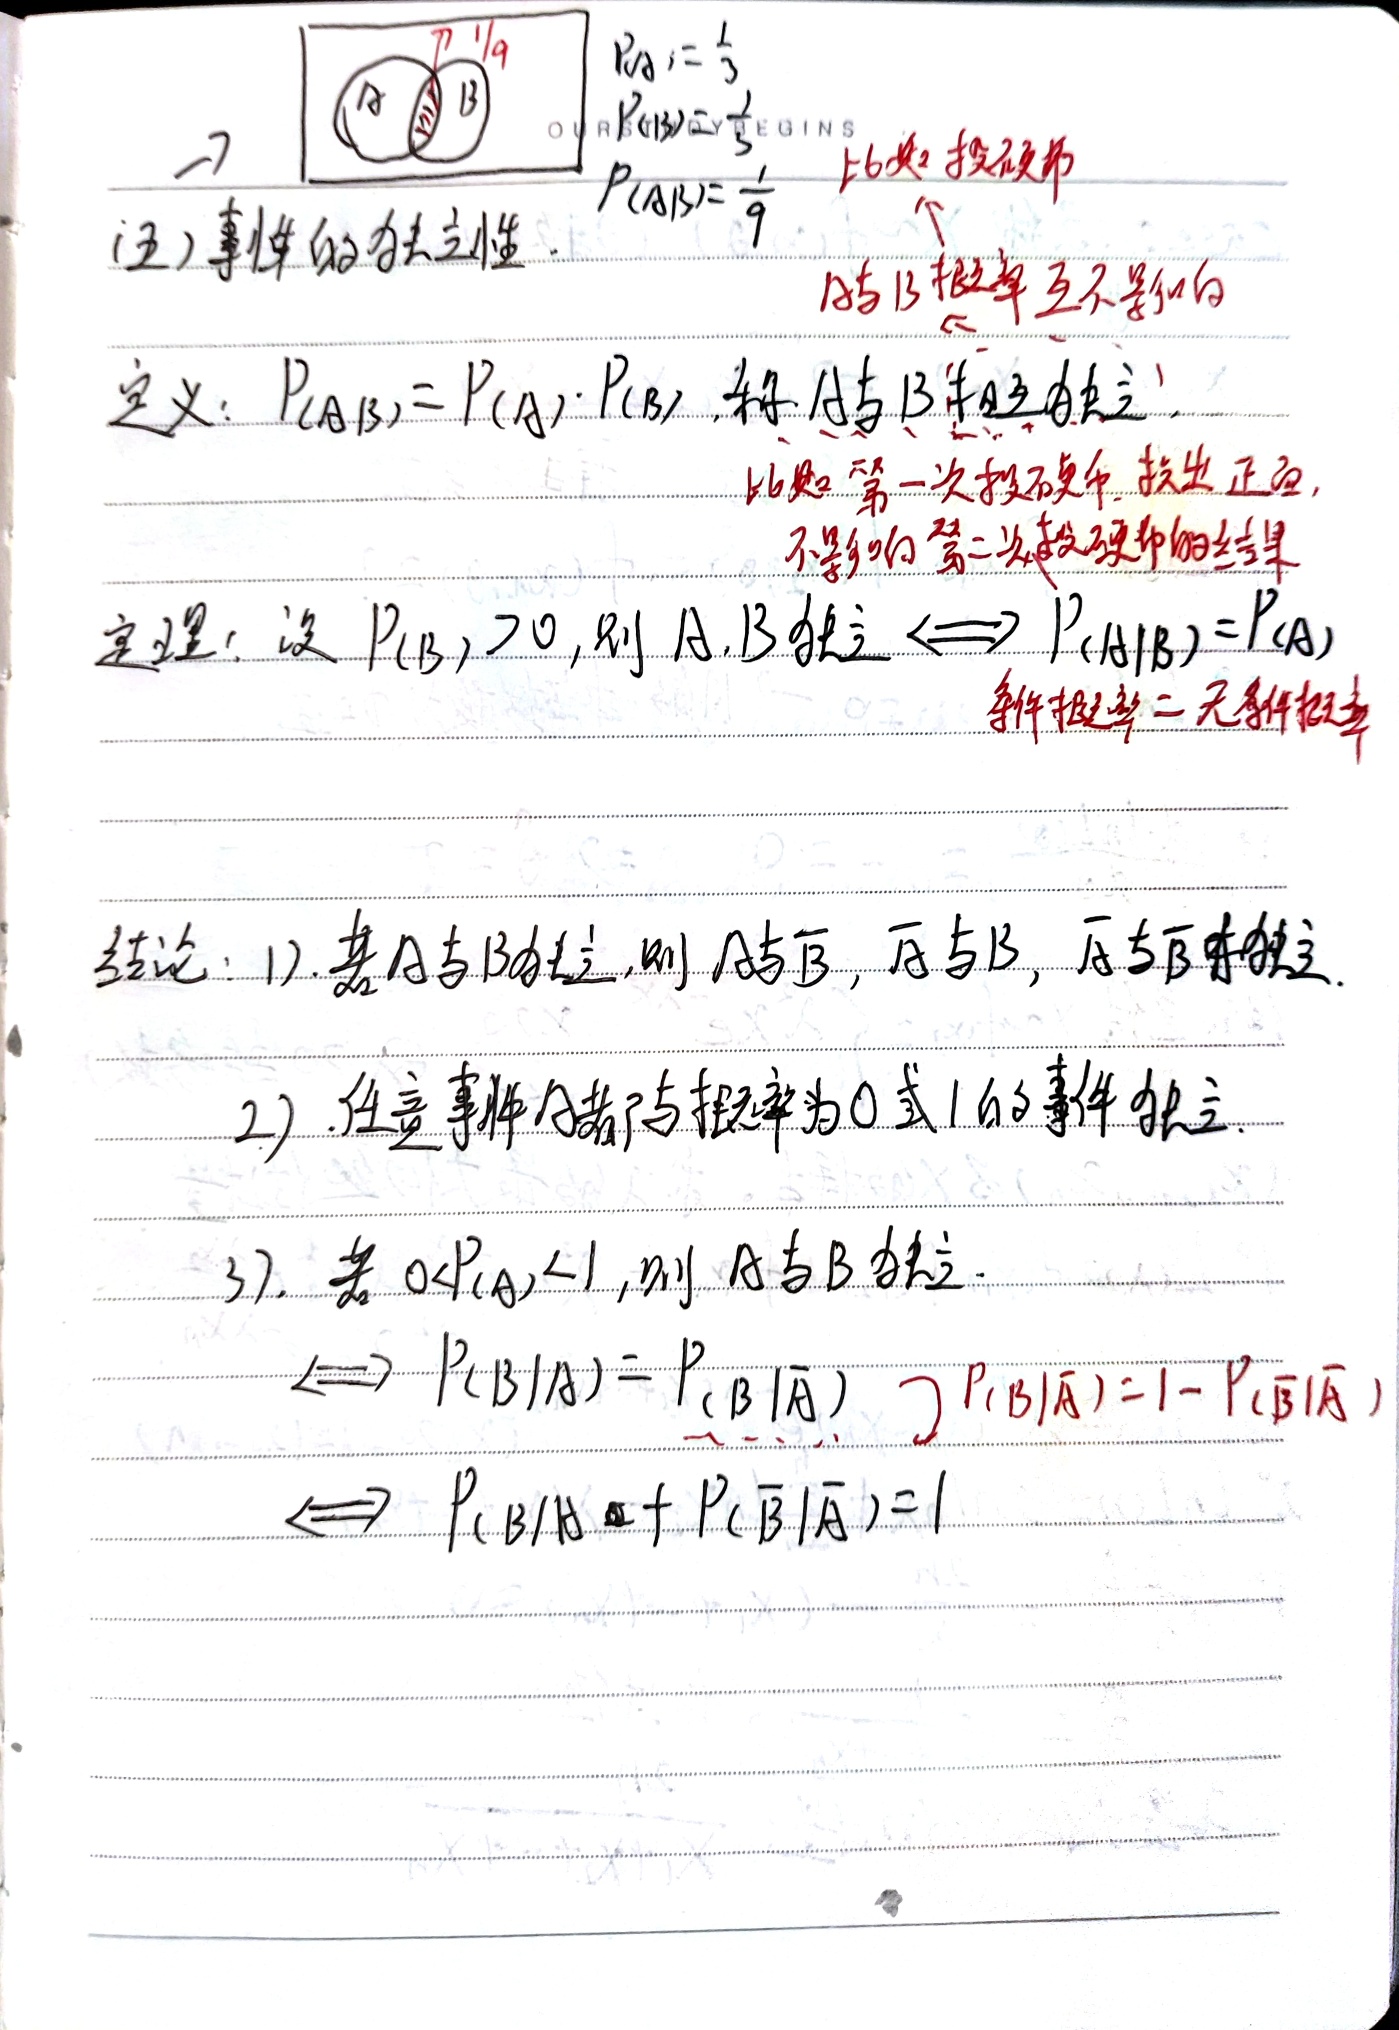 1/9
A B
P(A)=1/3
P(B)=1/3
OURS DY BEGINS
P(AB)=1/9
比如投硬币
(五)事件的独立性.
A与B概率互不影响
定义: P(AB)=P(A)·P(B),称A与B相互独立.
比如第一次投硬币,投出正面,
不影响第二次投硬币的结果
定理: 设 P(B)>0,则 A,B独立 <=> P(A|B)=P(A)
条件概率=无条件概率
结论: 1). 若A与B独立,则 A与B̅, A̅与B, A̅与B̅ 独立.
2). 任意事件A都与概率为0或1的事件独立.
3). 若 0<P(A)<1,则 A与B独立.
<=> P(B|A)=P(B|A̅) P(B|A̅)=1-P(B̅|A̅)
<=> P(B|A + P(B̅|A̅)=1